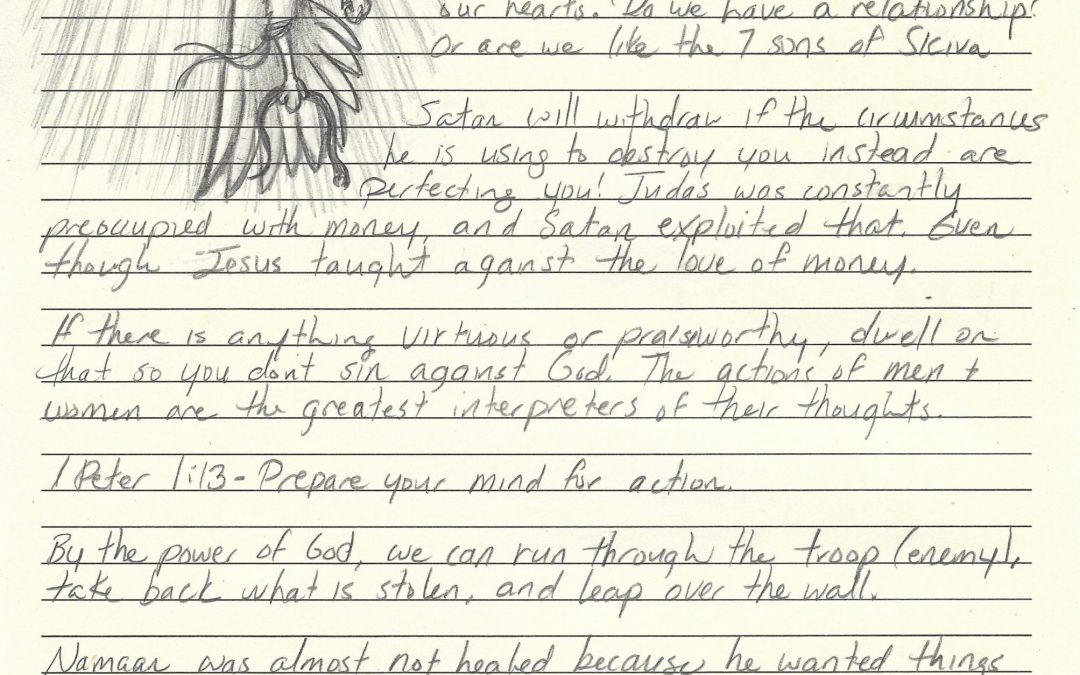 our hearts. Do we have a relationship?
Or are we like the 7 sons of Skiva
Satan will withdraw if the circumstances
he is using to destroy you instead are
perfecting you! Judas was constantly
preoccupied with money, and Satan exploited that. Even
though Jesus taught against the love of money.
If there is anything virtuous or praiseworthy, dwell on
that so you don't sin against God. The actions of men +
women are the greatest interpreters of their thoughts.
1 Peter 1:13 - Prepare your mind for action.
By the power of God, we can run through the troop (enemy),
take back what is stolen, and leap over the wall.
Namaan was almost not healed because he wanted things